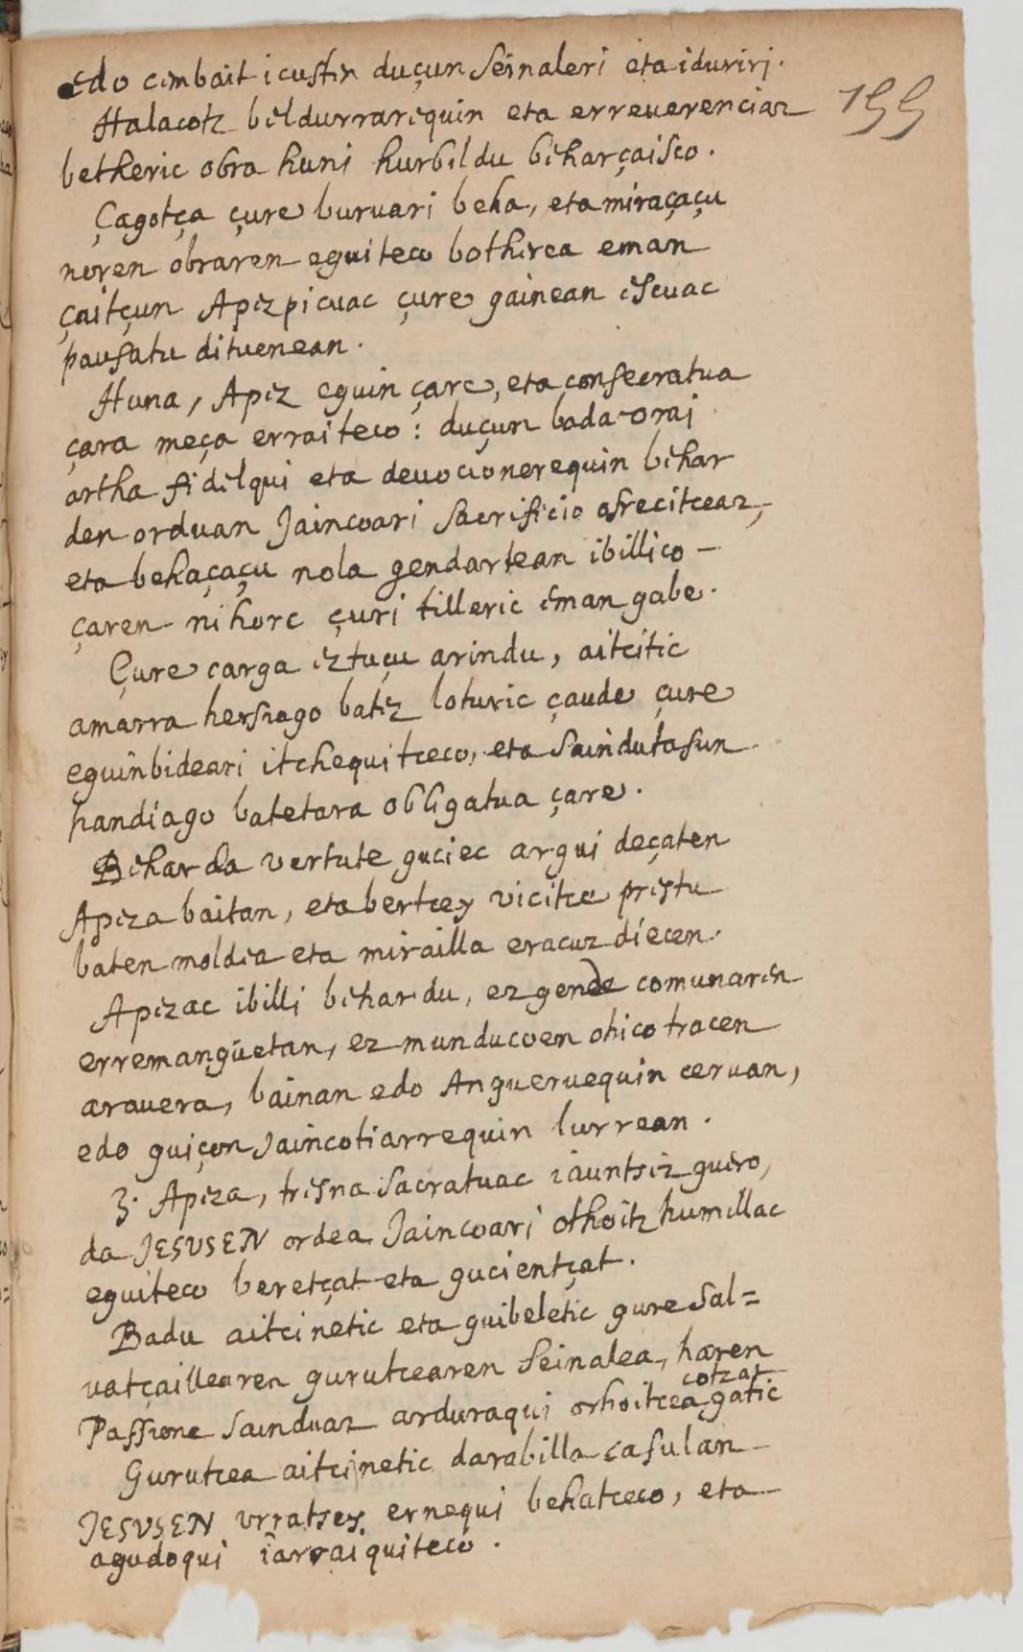 edo cembait icustin duçun seinaleri eta iduriri.
155
Halacotz beldurrarequin eta erreuerenciaz
betheric obra huni hurbildu beharçaisco.
Çagotça çure buruari beha, eta miraçaçu
noren obraren eguiteco bothirea eman
çaitçun Apizpicuac çure gainean escuac
pausatu dituenean.
Huna, Apez eguin çare, eta consecratua
çara meça erraiteco: duçun bada orai
artha fidelqui eta deuocionerequin behar
den orduan Jaincoari Sacrificio ofrecitceaz,
eta behaçaçu nola gendartean ibillico-
çaren nihorc çuri tilleric eman gabe.
Çure carga eztuçu arindu, aitcitic
amarra hersiago batez loturic çaude çure
eguinbideari itchequitceco, eta Saindutasun
handiago batetara obligatua çare.
Behar da vertute guciec argui deçaten
Apeza baitan, eta bertcey vicitce prestu
baten moldea eta mirailla eracuz diecen.
Apezac ibilli behar du, ez gende comunaren
erremangüetan, ez munducoen ohico tracen
arauera, bainan edo Angueruequin ceruan,
edo guiçon Jaincotiarrequin lurrean.
3. Apeza, tresna sacratuac iauntsiz guero,
da JESUSEN ordea Jaincoari othoitz humillac
eguiteco beretçat eta gucientçat.
Badu aitcinetic eta guibeletic gure Sal=
vatçaillearen gurutcearen seinalea, haren
Passione Sainduaz arduraqui orhoitceagatic
cotzat
Gurutcea aitcinetic darabilla casulan
JESUSEN urratsey ernequi behatceco, eta
agudoqui iarraiquiteco.